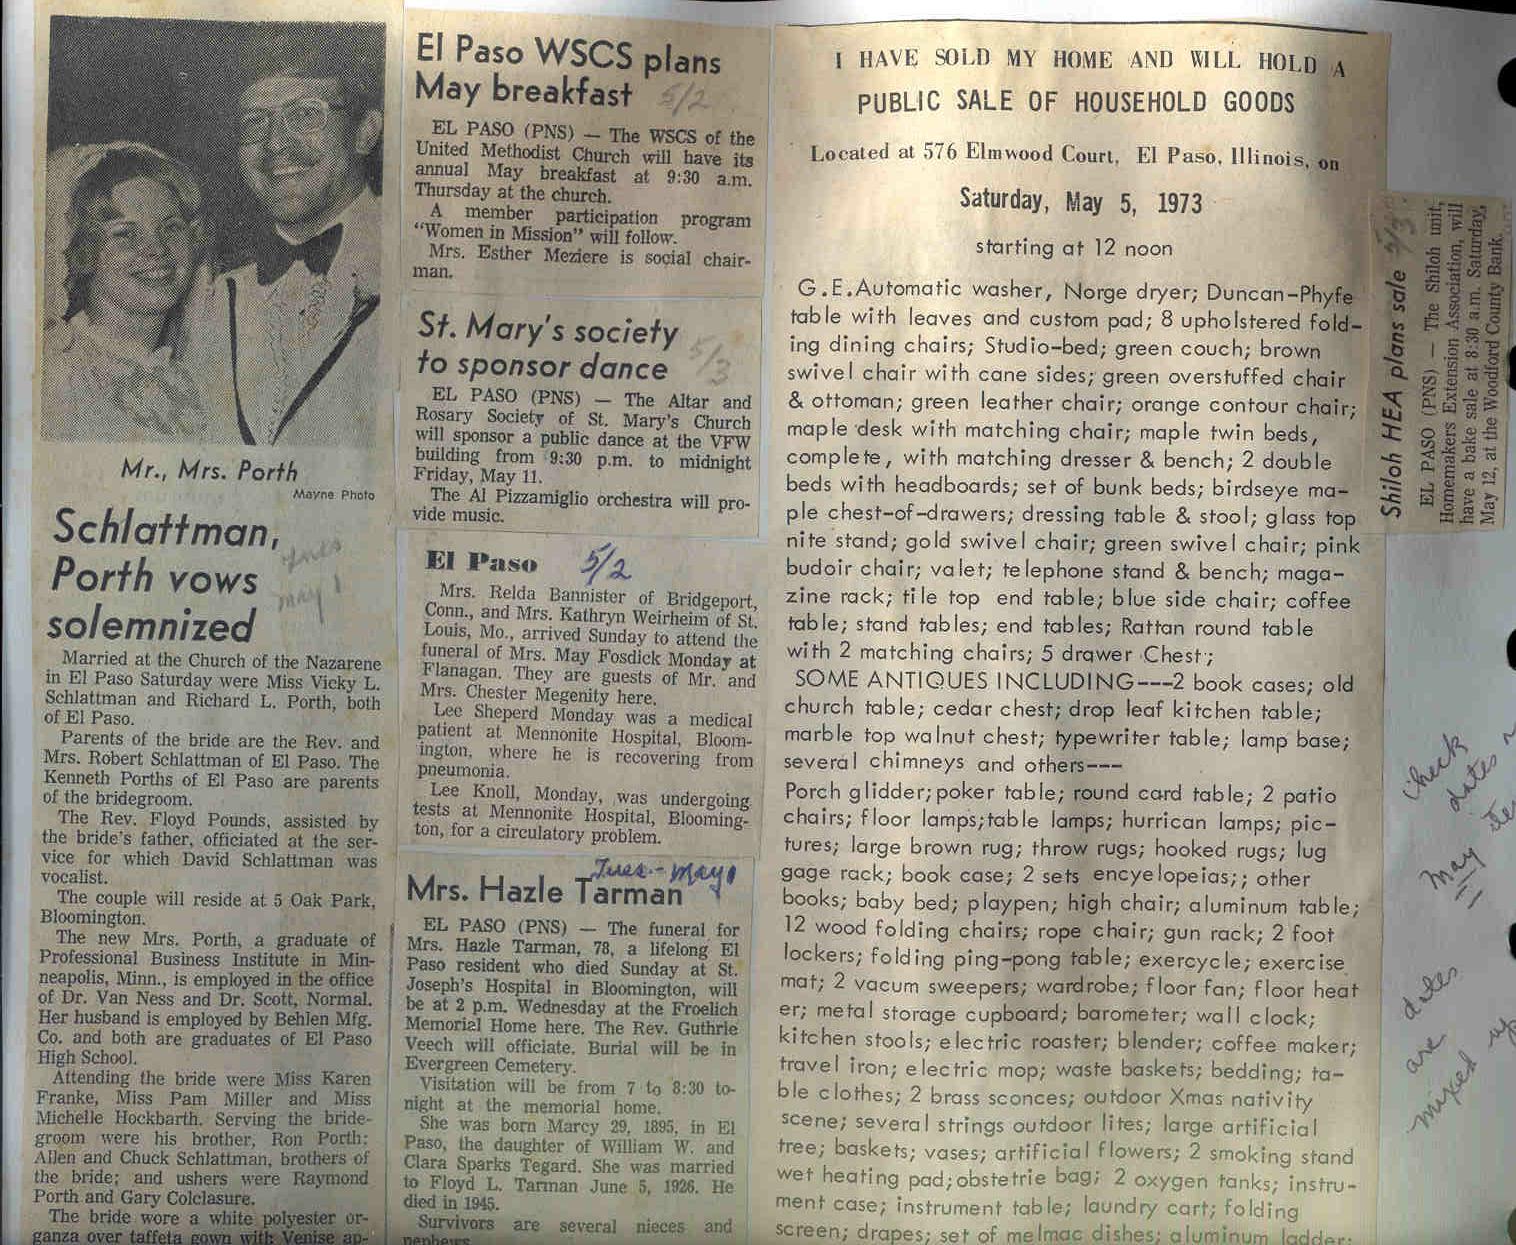 Mr., Mrs. Porth
Mayne Photo
Schlattman,
Porth vows
solemnized
may 1
Married at the Church of the Nazarene
in El Paso Saturday were Miss Vicky L.
Schlattman and Richard L. Porth, both
of El Paso.
Parents of the bride are the Rev. and
Mrs. Robert Schlattman of El Paso. The
Kenneth Porths of El Paso are parents
of the bridegroom.
The Rev. Floyd Pounds, assisted by
the bride's father, officiated at the ser-
vice for which David Schlattman was
vocalist.
The couple will reside at 5 Oak Park,
Bloomington.
The new Mrs. Porth, a graduate of
Professional Business Institute in Min-
neapolis, Minn., is employed in the office
of Dr. Van Ness and Dr. Scott, Normal.
Her husband is employed by Behlen Mfg.
Co. and both are graduates of El Paso
High School.
Attending the bride were Miss Karen
Franke, Miss Pam Miller and Miss
Michelle Hockbarth. Serving the bride-
groom were his brother, Ron Porth;
Allen and Chuck Schlattman, brothers of
the bride; and ushers were Raymond
Porth and Gary Colclasure.
The bride wore a white polyester or-
ganza over taffeta gown with Venise ap-
El Paso WSCS plans
May breakfast 5/2
EL PASO (PNS) — The WSCS of the
United Methodist Church will have its
annual May breakfast at 9:30 a.m.
Thursday at the church.
A member participation program
"Women in Mission" will follow.
Mrs. Esther Meziere is social chair-
man.
St. Mary's society
to sponsor dance 5/3
EL PASO (PNS) — The Altar and
Rosary Society of St. Mary's Church
will sponsor a public dance at the VFW
building from 9:30 p.m. to midnight
Friday, May 11.
The Al Pizzamiglio orchestra will pro-
vide music.
El Paso 5/2
Mrs. Relda Bannister of Bridgeport,
Conn., and Mrs. Kathryn Weirheim of St.
Louis, Mo., arrived Sunday to attend the
funeral of Mrs. May Fosdick Monday at
Flanagan. They are guests of Mr. and
Mrs. Chester Megenity here.
Lee Sheperd Monday was a medical
patient at Mennonite Hospital, Bloom-
ington, where he is recovering from
pneumonia.
Lee Knoll, Monday, was undergoing
tests at Mennonite Hospital, Blooming-
ton, for a circulatory problem.
Tues.- May 1
Mrs. Hazle Tarman
EL PASO (PNS) — The funeral for
Mrs. Hazle Tarman, 78, a lifelong El
Paso resident who died Sunday at St.
Joseph's Hospital in Bloomington, will
be at 2 p.m. Wednesday at the Froelich
Memorial Home here. The Rev. Guthrie
Veech will officiate. Burial will be in
Evergreen Cemetery.
Visitation will be from 7 to 8:30 to-
night at the memorial home.
She was born Marcy 29, 1895, in El
Paso, the daughter of William W. and
Clara Sparks Tegard. She was married
to Floyd L. Tarman June 5, 1926. He
died in 1945.
Survivors are several nieces and
nephews.
I HAVE SOLD MY HOME AND WILL HOLD A
PUBLIC SALE OF HOUSEHOLD GOODS
Located at 576 Elmwood Court, El Paso, Illinois, on
Saturday, May 5, 1973
starting at 12 noon
G.E.Automatic washer, Norge dryer; Duncan-Phyfe
table with leaves and custom pad; 8 upholstered fold-
ing dining chairs; Studio-bed; green couch; brown
swivel chair with cane sides; green overstuffed chair
& ottoman; green leather chair; orange contour chair;
maple desk with matching chair; maple twin beds,
complete, with matching dresser & bench; 2 double
beds with headboards; set of bunk beds; birdseye ma-
ple chest-of-drawers; dressing table & stool; glass top
nite stand; gold swivel chair; green swivel chair; pink
budoir chair; valet; telephone stand & bench; maga-
zine rack; tile top end table; blue side chair; coffee
table; stand tables; end tables; Rattan round table
with 2 matching chairs; 5 drawer Chest;
SOME ANTIQUES INCLUDING---2 book cases; old
church table; cedar chest; drop leaf kitchen table;
marble top walnut chest; typewriter table; lamp base;
several chimneys and others---
Porch glidder;poker table; round card table; 2 patio
chairs; floor lamps;table lamps; hurrican lamps; pic-
tures; large brown rug; throw rugs; hooked rugs; lug
gage rack; book case; 2 sets encyelopeias;; other
books; baby bed; playpen; high chair; aluminum table;
12 wood folding chairs; rope chair; gun rack; 2 foot
lockers; folding ping-pong table; exercycle; exercise
mat; 2 vacum sweepers; wardrobe; floor fan; floor heat
er; metal storage cupboard; barometer; wall clock;
kitchen stools; electric roaster; blender; coffee maker;
travel iron; electric mop; waste baskets; bedding; ta-
ble clothes; 2 brass sconces; outdoor Xmas nativity
scene; several strings outdoor lites; large artificial
tree; baskets; vases; artificial flowers; 2 smoking stand
wet heating pad;obstetrie bag; 2 oxygen tanks; instru-
ment case; instrument table; laundry cart; folding
screen; drapes; set of melmac dishes; aluminum ladder;
Shiloh HEA plans sale
EL PASO (PNS) — The Shiloh unit,
Homemakers Extension Association, will
have a bake sale at 8:30 a.m. Saturday,
May 12, at the Woodford County Bank.
Check
dates
May
dates
are
mixed up